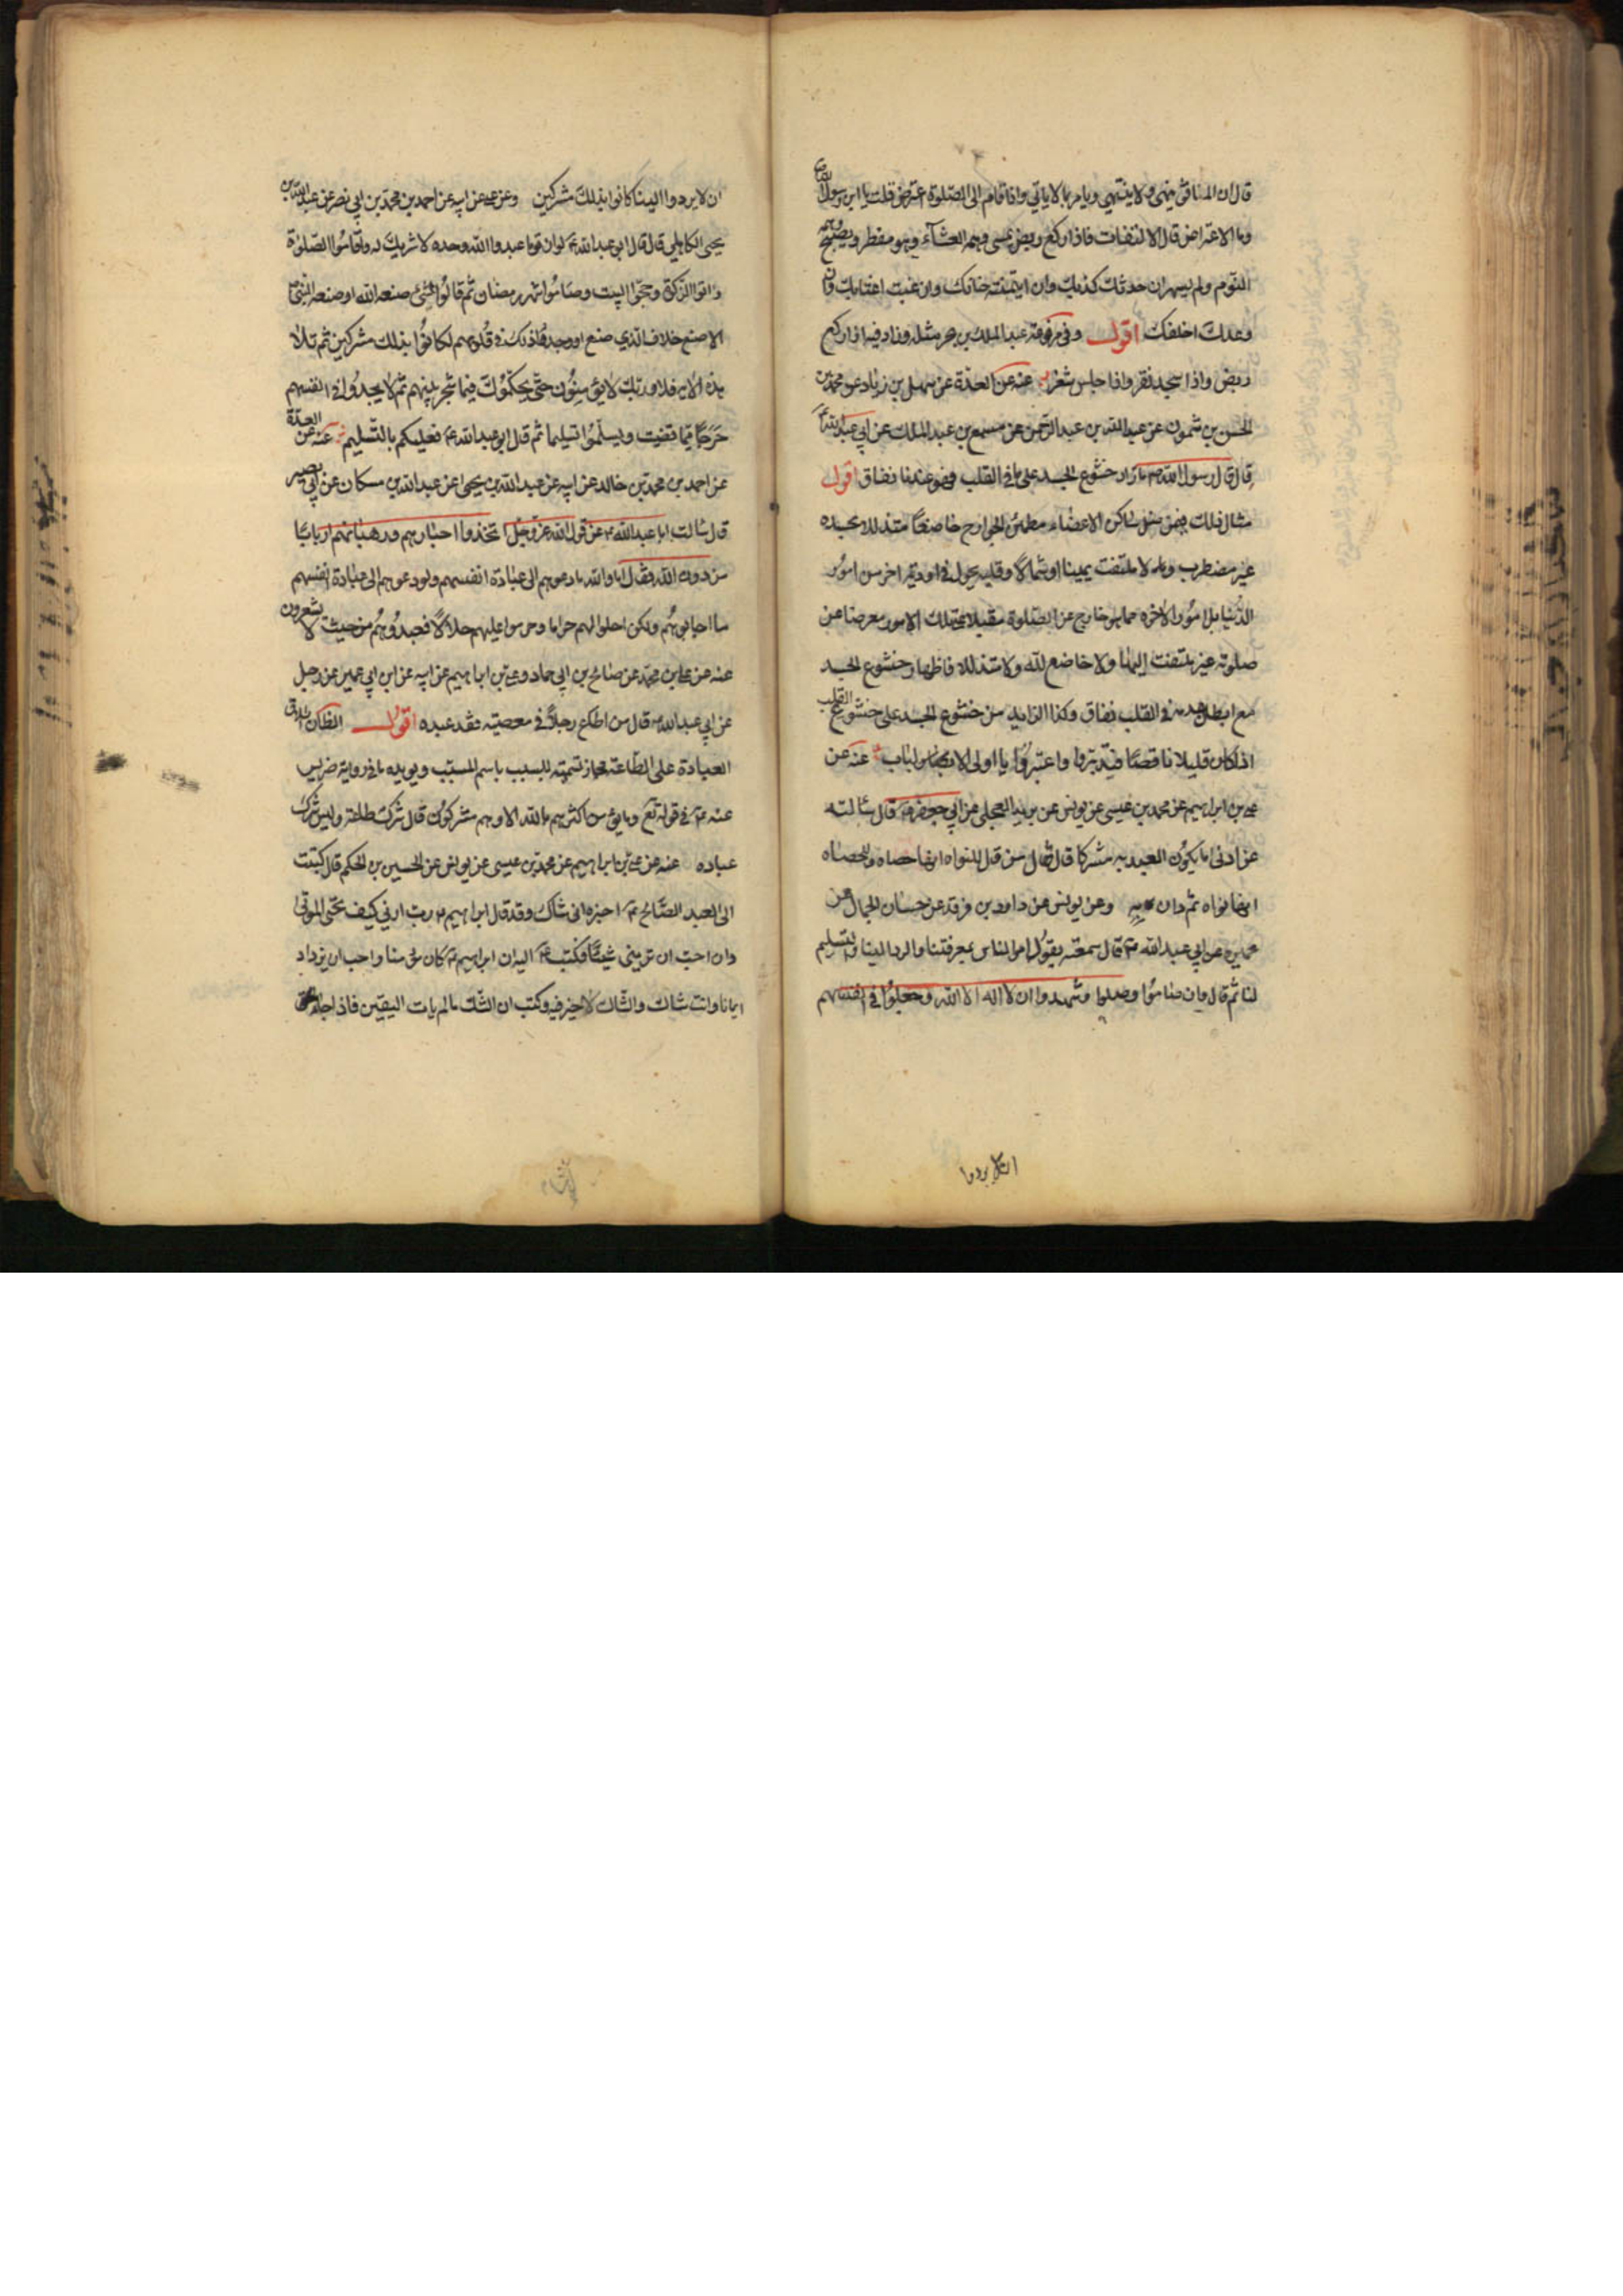 قال ان المنافق ينهى ولا ينتهي ويامر بما لا ياتي واذا قام الى الصلوة اعترض قلت يا ابن رسول الله
وما الاعتراض قال الالتفات فاذا ركع ربض يمسى وهمه العشآء وهو مفطر ويصبح وهمه
النوم ولم يسهر ان حدثك كذبك وان ايتمنته خانك وان غبت اغتابك وان
وعدك اخلفك اقول وفي مرفوعة عبد الملك بن بحر مثله وزاد فيه اذا ركع
ربض واذا سجد نقر واذا جلس شغر عنه عن العدّة عن سهل بن زياد عن محمد بن
الحسن بن شمون عن عبد الله بن عبد الرحمن عن مسمع بن عبد الملك عن ابي عبد الله
قال قال رسول الله ص ما زاد خشوع الجسد على ما في القلب فهو عندنا نفاق اقول
مثال ذلك فيمن ساكن الاعضاء مطمئن الجوارح خاضعًا متذللا بجسده
غير مضطرب ولا ملتفت يمينا او شمالا وقلبه يجول في اودية اخر من امور
الدنيا بل امور الآخره مما هو خارج عن الصلوة مقبلا على تلك الامور معرضا عن
صلوته غير ملتفت اليها ولا خاضع لله ولا متذلل فاظهار خشوع الجسد
مع ابطال عدمه في القلب نفاق وكذا الزايد من خشوع الجسد على خشوع القلب
اذا كان قليلا ناقصًا فتدبّروا واعتبروا يا اولى الالباب عنه عن
علي بن ابراهيم عن محمد بن عيسى عن يونس عن بريد العجلي عن ابي جعفر ع قال سالته
عن ادنى ما يكون العبد به مشركا قال فقال من قال للنواه انها حصاه وللحصاه
انها نواه ثم دان به وعن يونس عن داود بن فرقد عن حسان الجمال عن
عميره عن ابي عبد الله ع قال سمعته يقول امر الناس بمعرفتنا والرد الينا والتسليم
لنا ثم قال وان صاموا وصلوا وشهدوا ان لا اله الا الله وجعلوا في انفسهم
ان لا يردوا
ان لا يردوا الينا كانوا بذلك مشركين وعن علي عن ابيه عن احمد بن محمد بن ابي نصر عن عبد الله بن
يحيى الكاهلي قال قال ابو عبد الله ع لو ان قوما عبدوا الله وحده لا شريك له واقاموا الصلوة
واتوا الزكوة وحجّوا البيت وصاموا شهر رمضان ثم قالوا لشئ صنعه الله او صنعه النبي ص
الا صنع خلاف الذي صنع او وجدوا ذلك في قلوبهم لكانوا بذلك مشركين ثم تلا
هذه الآيه فلا وربك لا يؤمنون حتى يحكموك فيما شجر بينهم ثم لا يجدوا في انفسهم
حَرَجًا مما قضيت ويسلموا تسليما ثم قال ابو عبد الله ع فعليكم بالتسليم عنه عن العدّة
عن احمد بن محمد بن خالد عن ابيه عن عبد الله بن يحيى عن عبد الله بن مسكان عن ابي بصير
قال سالت ابا عبد الله ع عن قول الله عز وجل اتخذوا احبارهم ورهبانهم اربابًا
من دون الله فقال اما والله ما دعوهم الى عبادة انفسهم ولو دعوهم الى عبادة انفسهم
ما اجابوهم ولكن احلوا لهم حراما وحرموا عليهم حلالاً فعبدوهم من حيث لا يشعرون
عنه عن علي بن محمد عن صالح بن ابي حماد وعلي بن ابراهيم عن ابيه عن ابن ابي عمير عن رجل
عن ابي عبد الله ع قال من اطاع رجلاً في معصيته فقد عبده اقول الظاهر ان اطلاق
العبادة على الطاعة مجاز تسمية للسبب باسم المسبّب ويويده ما في رواية ضريس
عنه ع في قوله تع وما يؤمن اكثرهم بالله الا وهم مشركون قال شرك طاعة وليس شرك
عباده عنه عن علي بن ابراهيم عن محمد بن عيسى عن يونس عن الحسين بن الحكم قال كتبت
الى العبد الصّالح ع اخبره اني شاك وقد قال ابراهيم ع رب ارني كيف تحيى الموتى
وان احبّ ان تريني شيئًا فكتب ع اليه ان ابراهيم ع كان مؤمنا واحب ان يزداد
ايمانا وانت شاك والشاك لا خير فيه وكتب ان الشك ما لم يات اليقين فاذا جاء